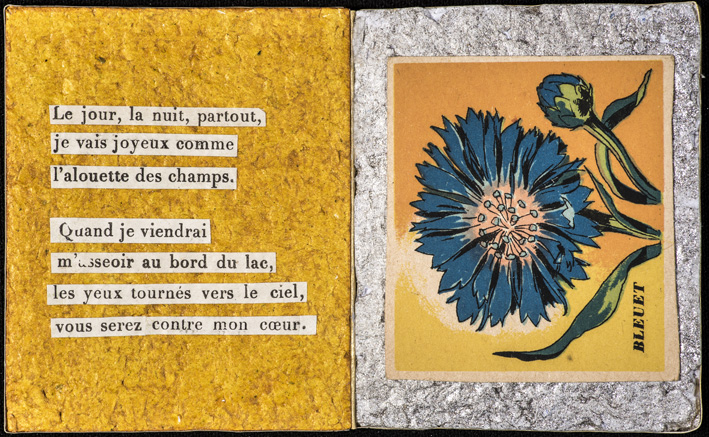 Le jour, la nuit, partout,
je vais joyeux comme
l'alouette des champs.
Quand je viendrai
m'asseoir au bord du lac,
les yeux tournés vers le ciel,
vous serez contre mon cœur.
BLEUET